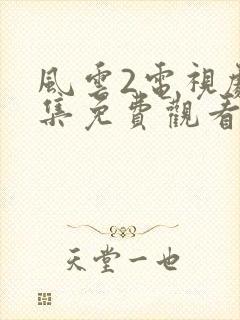 風雲2電視劇
集免費觀看
天堂一也